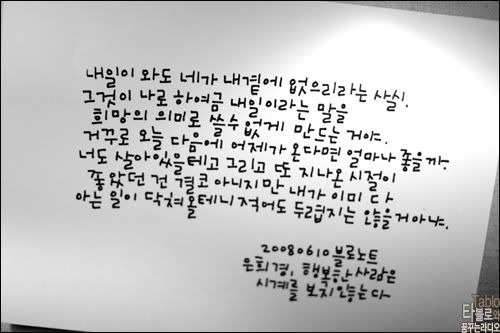 내일이 와도 네가 내곁에 없으리라는 사실.
그것이 나로 하여금 내일이라는 말을
희망의 의미로 쓸수 없게 만드는 거야.
거꾸로 오늘 다음에 어제가 온다면 얼마나 좋을까.
너도 살아있을테고 그리고 또 지나온 시절이
좋았던 건 결코 아니지만 내가 이미 다
아는 일이 닥쳐올테니 적어도 두렵지는 않을거아냐.
20080610 블로노트
은희경, 행복한 사람은
시계를 보지 않는다
Tablo
타블로와
꿈꾸는라디오